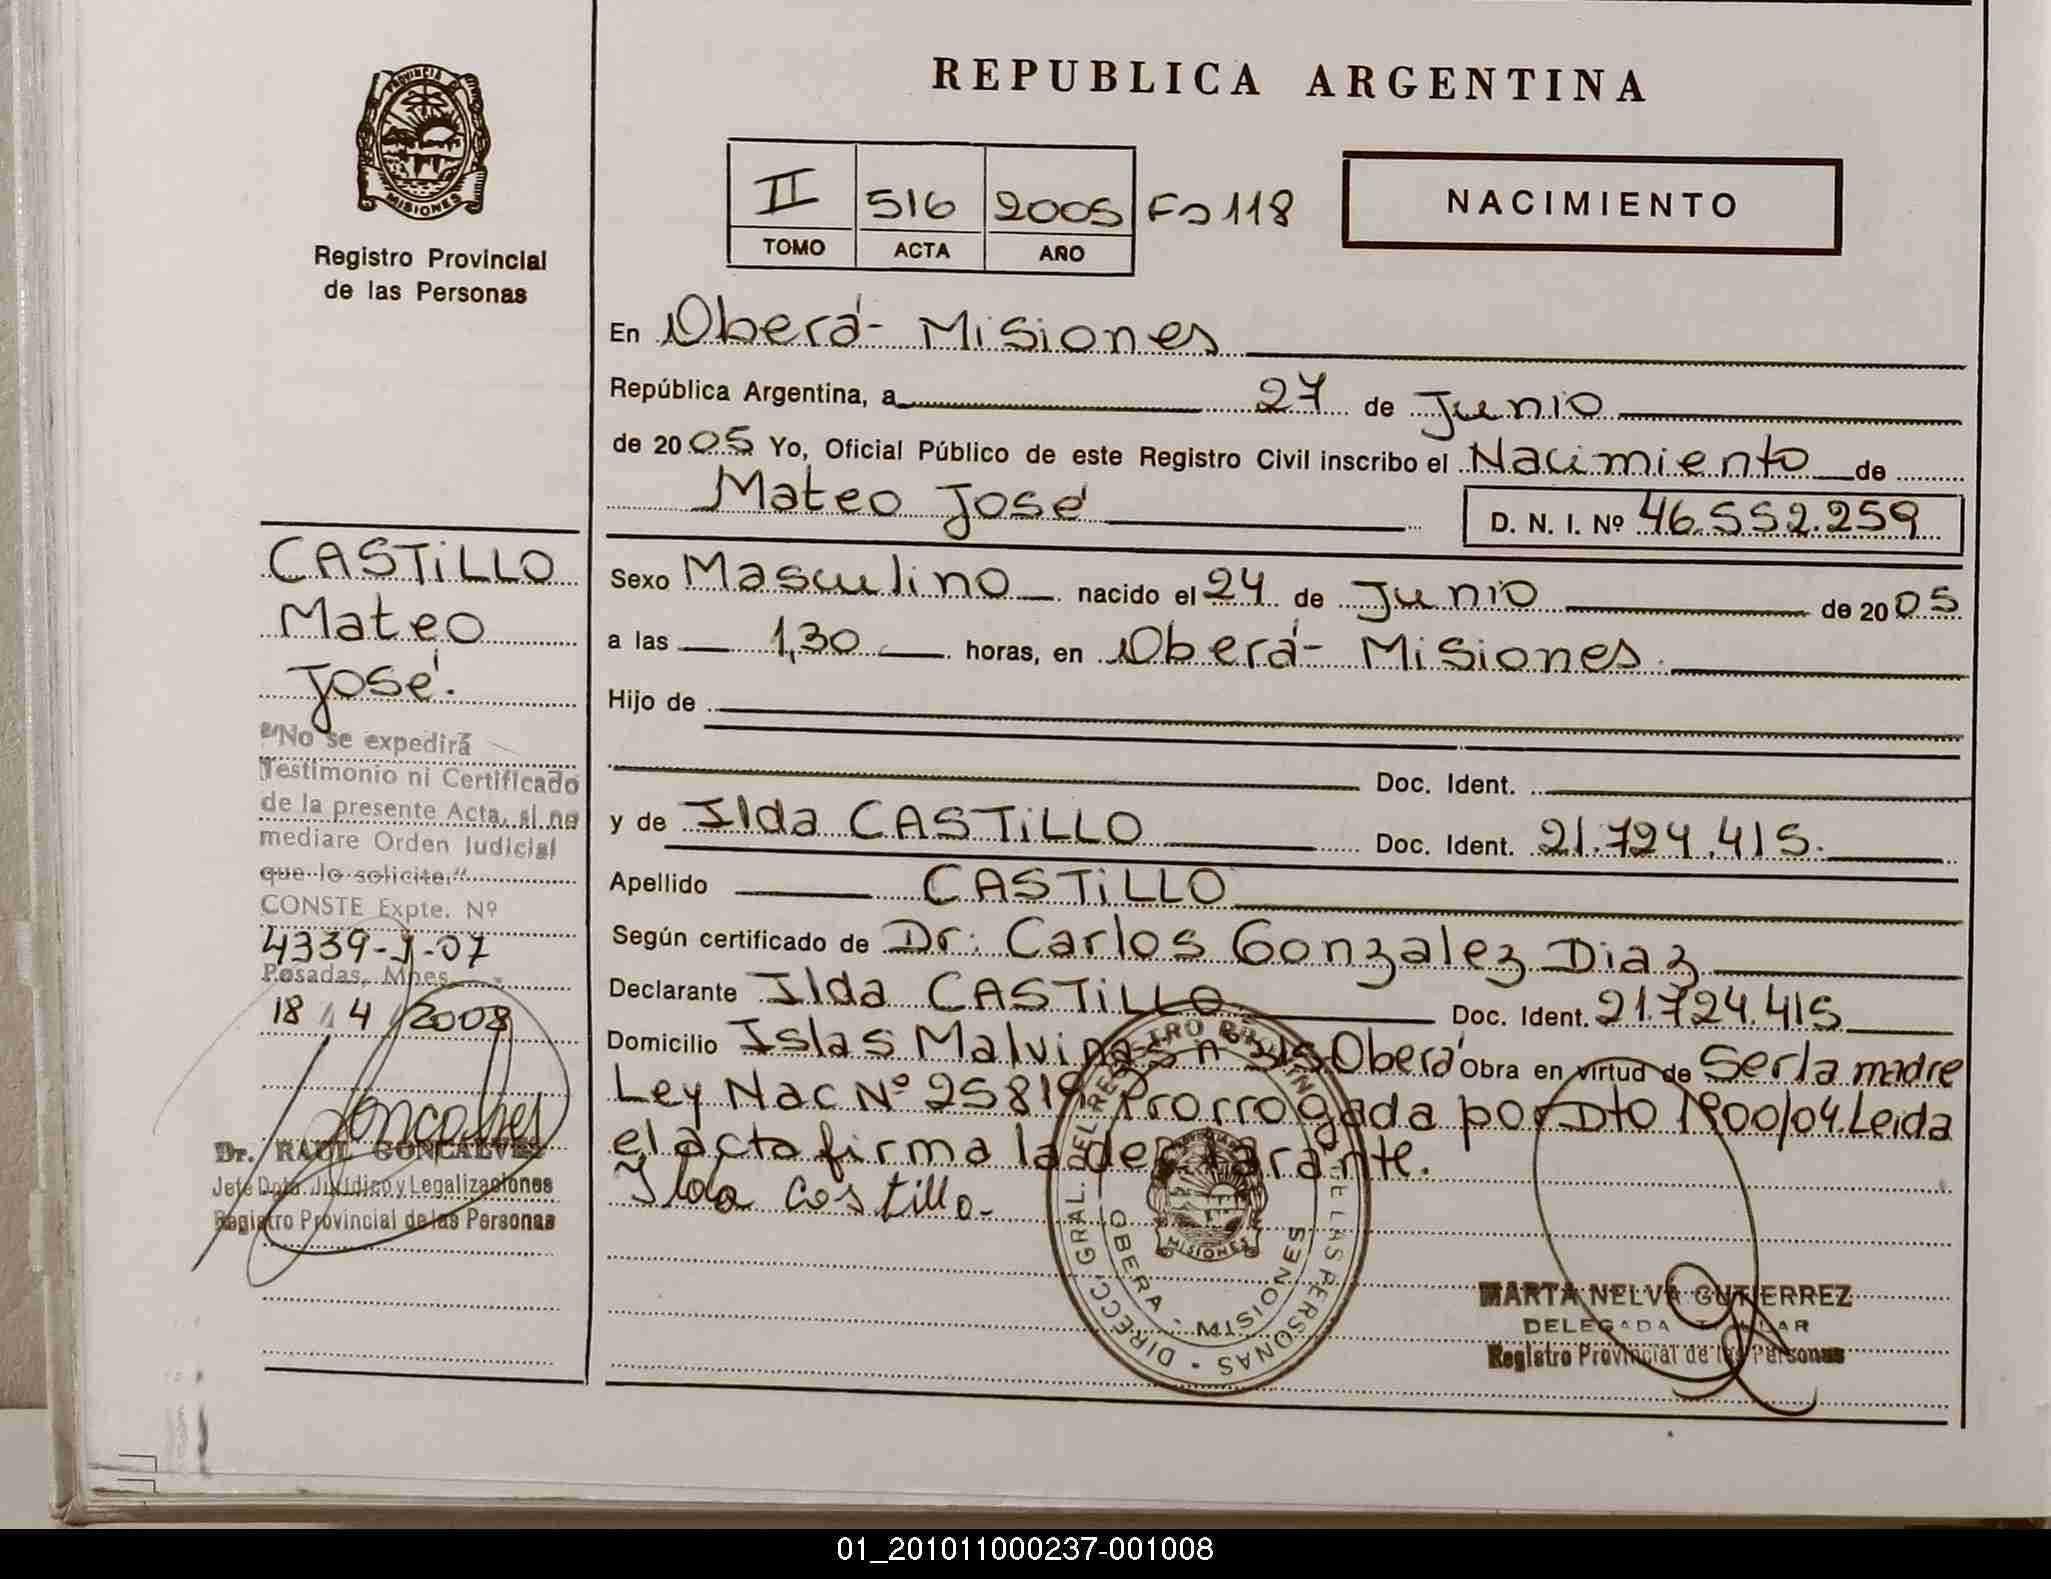 PROVINCIA
MISIONES
Registro Provincial
de las Personas
CASTiLLO
Mateo
José.
"No se expedirá
Testimonio ni Certificado
de la presente Acta, si no
mediare Orden Judicial
que lo solicite."
CONSTE Expte. Nº
4339-J-07
Posadas, Mnes
18 / 4 / 2008
Dr. RAUL GONCALVES
Jefe Dpto. Jurídico y Legalizaciones
Registro Provincial de las Personas
REPUBLICA ARGENTINA
II 516 2005 Fo 118
TOMO ACTA AÑO
NACIMIENTO
En Oberá - Misiones
República Argentina, a 27 de Junio
de 2005 Yo, Oficial Público de este Registro Civil inscribo el Nacimiento de
Mateo José D. N. I. Nº 46.552.259
Sexo Masculino nacido el 24 de Junio de 2005
a las 1,30 horas, en Oberá - Misiones
Hijo de
Doc. Ident.
y de Ilda CASTiLLO Doc. Ident. 21.724.415.
Apellido CASTiLLO
Según certificado de Dr. Carlos Gonzalez Diaz
Declarante Ilda CASTiLLO Doc. Ident. 21.724.415
Domicilio Islas Malvinas nº 315 Oberá Obra en virtud de Ser la madre
Ley Nac Nº 25819 Prorrogada por Dto 1900/04. Leida
el acta firma la declarante.
Ilda Castillo
DIRECC. GRAL. DEL REGISTRO PROVINCIAL DE LAS PERSONAS
OBERA - MISIONES
MISIONES
MARTA NELVA GUTIERREZ
DELEGADA TITULAR
Registro Provincial de las Personas
01_201011000237-001008